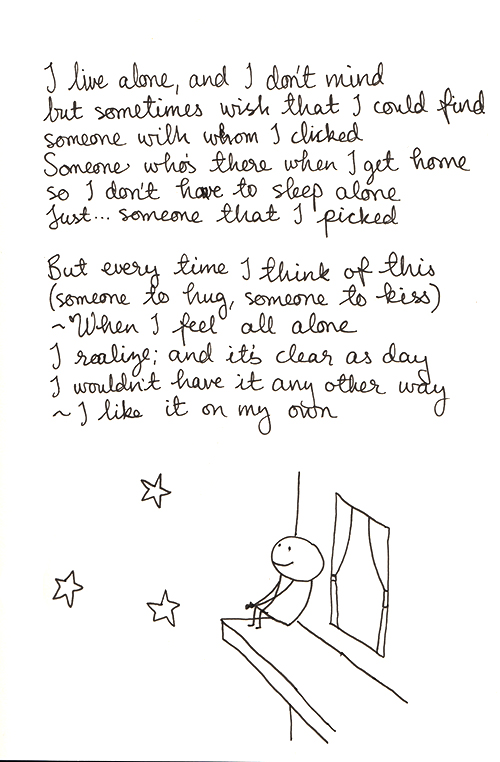 I live alone, and I don't mind
but sometimes wish that I could find
someone with whom I clicked
Someone who's there when I get home
so I don't have to sleep alone
Just... someone that I picked
But every time I think of this
(someone to hug, someone to kiss)
~ When I feel all alone
I realize; and it's clear as day
I wouldn't have it any other way
~ I like it on my own